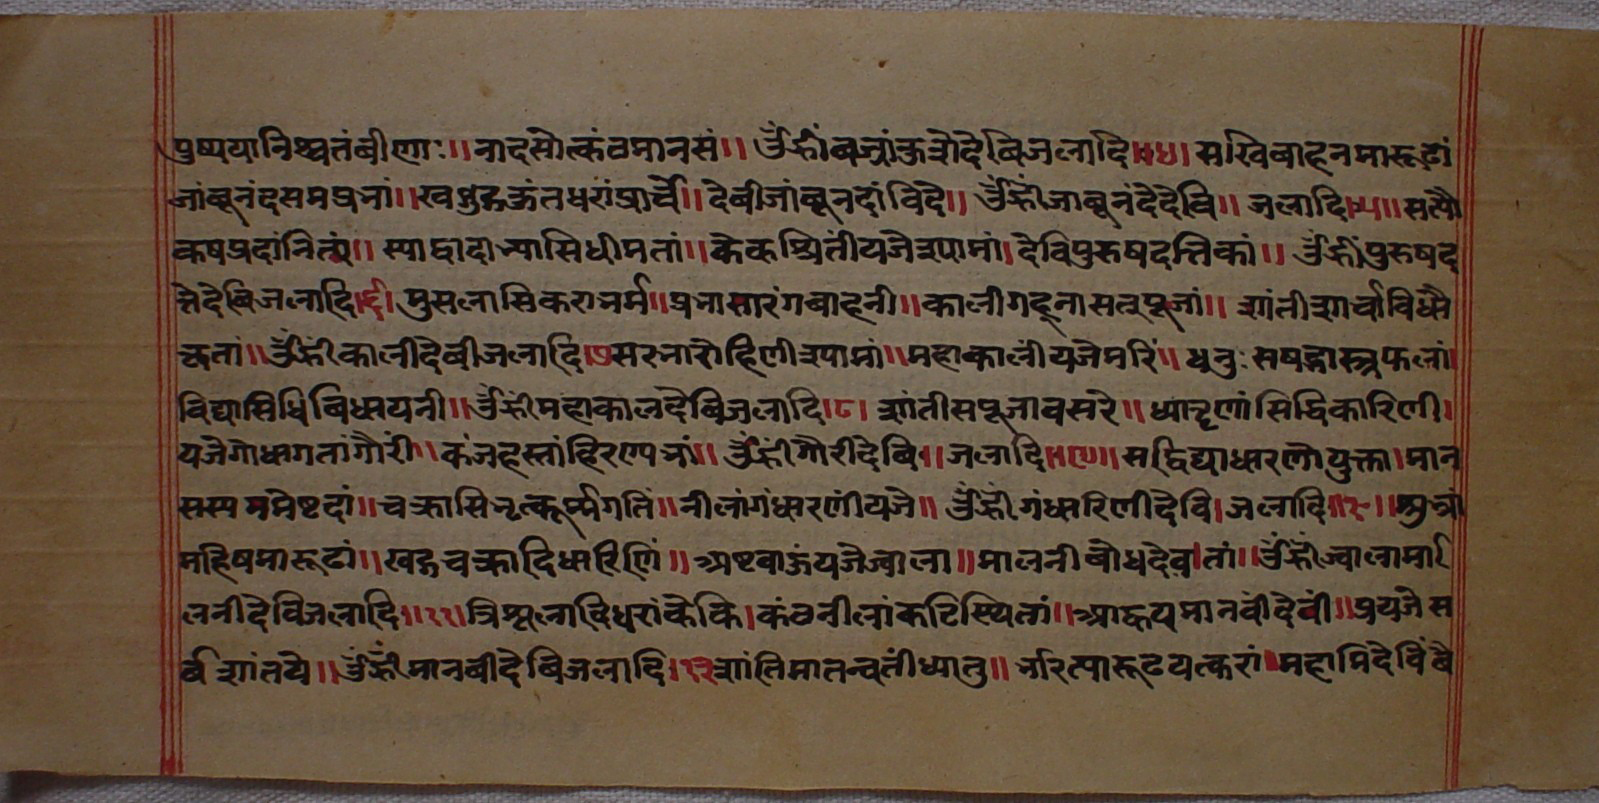 पुष्पयानिश्चतंबीणाः॥नादसोत्कंठमानसं॥ उँह्रींबज्रांकुशेदेबिजलादि॥४॥सखिबाहनमारूढां
जांबूनंदसमप्रभां॥खड्गकुंतधरांप्रार्चे॥देबीजांबूनदांविदे॥ उँह्रींजाबूनंदेदेवि॥ जलादि॥५॥सत्पौ
कषप्रदांनित्यं॥ स्याद्वादान्यासिधीमतां॥केकश्रितींयजेश्यामां।देविपुरुषदत्तिकां॥ उँह्रींपुरुषद
त्तेदेबिजलादि।६।मुसलासिकराभर्म॥प्रभासारंगबाहनी॥कालीगहनासत्पूजां॥ शांतीशर्चाविधौ
द्धतां॥उँह्रींकालीदेबीजलादि।७सरभारोहिणीश्यामां॥महाकालींयजेमरिं॥धनुःसषड्गास्त्रफलां।
विद्यासिधिबिधायनी॥उँह्रींमहाकालदेबिजलादि।८। शांतीसपूजावसरे॥ध्यातृणांसिद्धिकारिणी।
यजेगोधागतांगौरीं॥कंजहस्तांहिरण्यभां॥ उँह्रींगौरीदेबि॥जलादि॥९॥सद्विद्याधारणोयुक्ता।मान
सस्यममेष्टदां॥चक्रासिभृत्कूर्म्मगतिं॥नीलांगंधारणींयजे॥ उँह्रींगंधारिणीदेवि।जलादि॥१०॥शुभ्रां
महिषमारूढां॥खड्गचक्रादिधारिणिं॥अष्टबाऊंयजेज्वाला॥मालनीबोधदेवतां॥उँह्रींज्वालामा
लनीदेविजलादि॥११।त्रिशूलादिधरांकेकि।कंठनीलांकटिस्थितां॥आह्वयमानवींदेवीं॥प्रयजेस
र्बशांतये॥उँह्रींमानबीदेबिजलादि।१२शांतिमातन्वतींध्यातु॥ भरित्यारूढयत्करां॥महामिदेविंबै